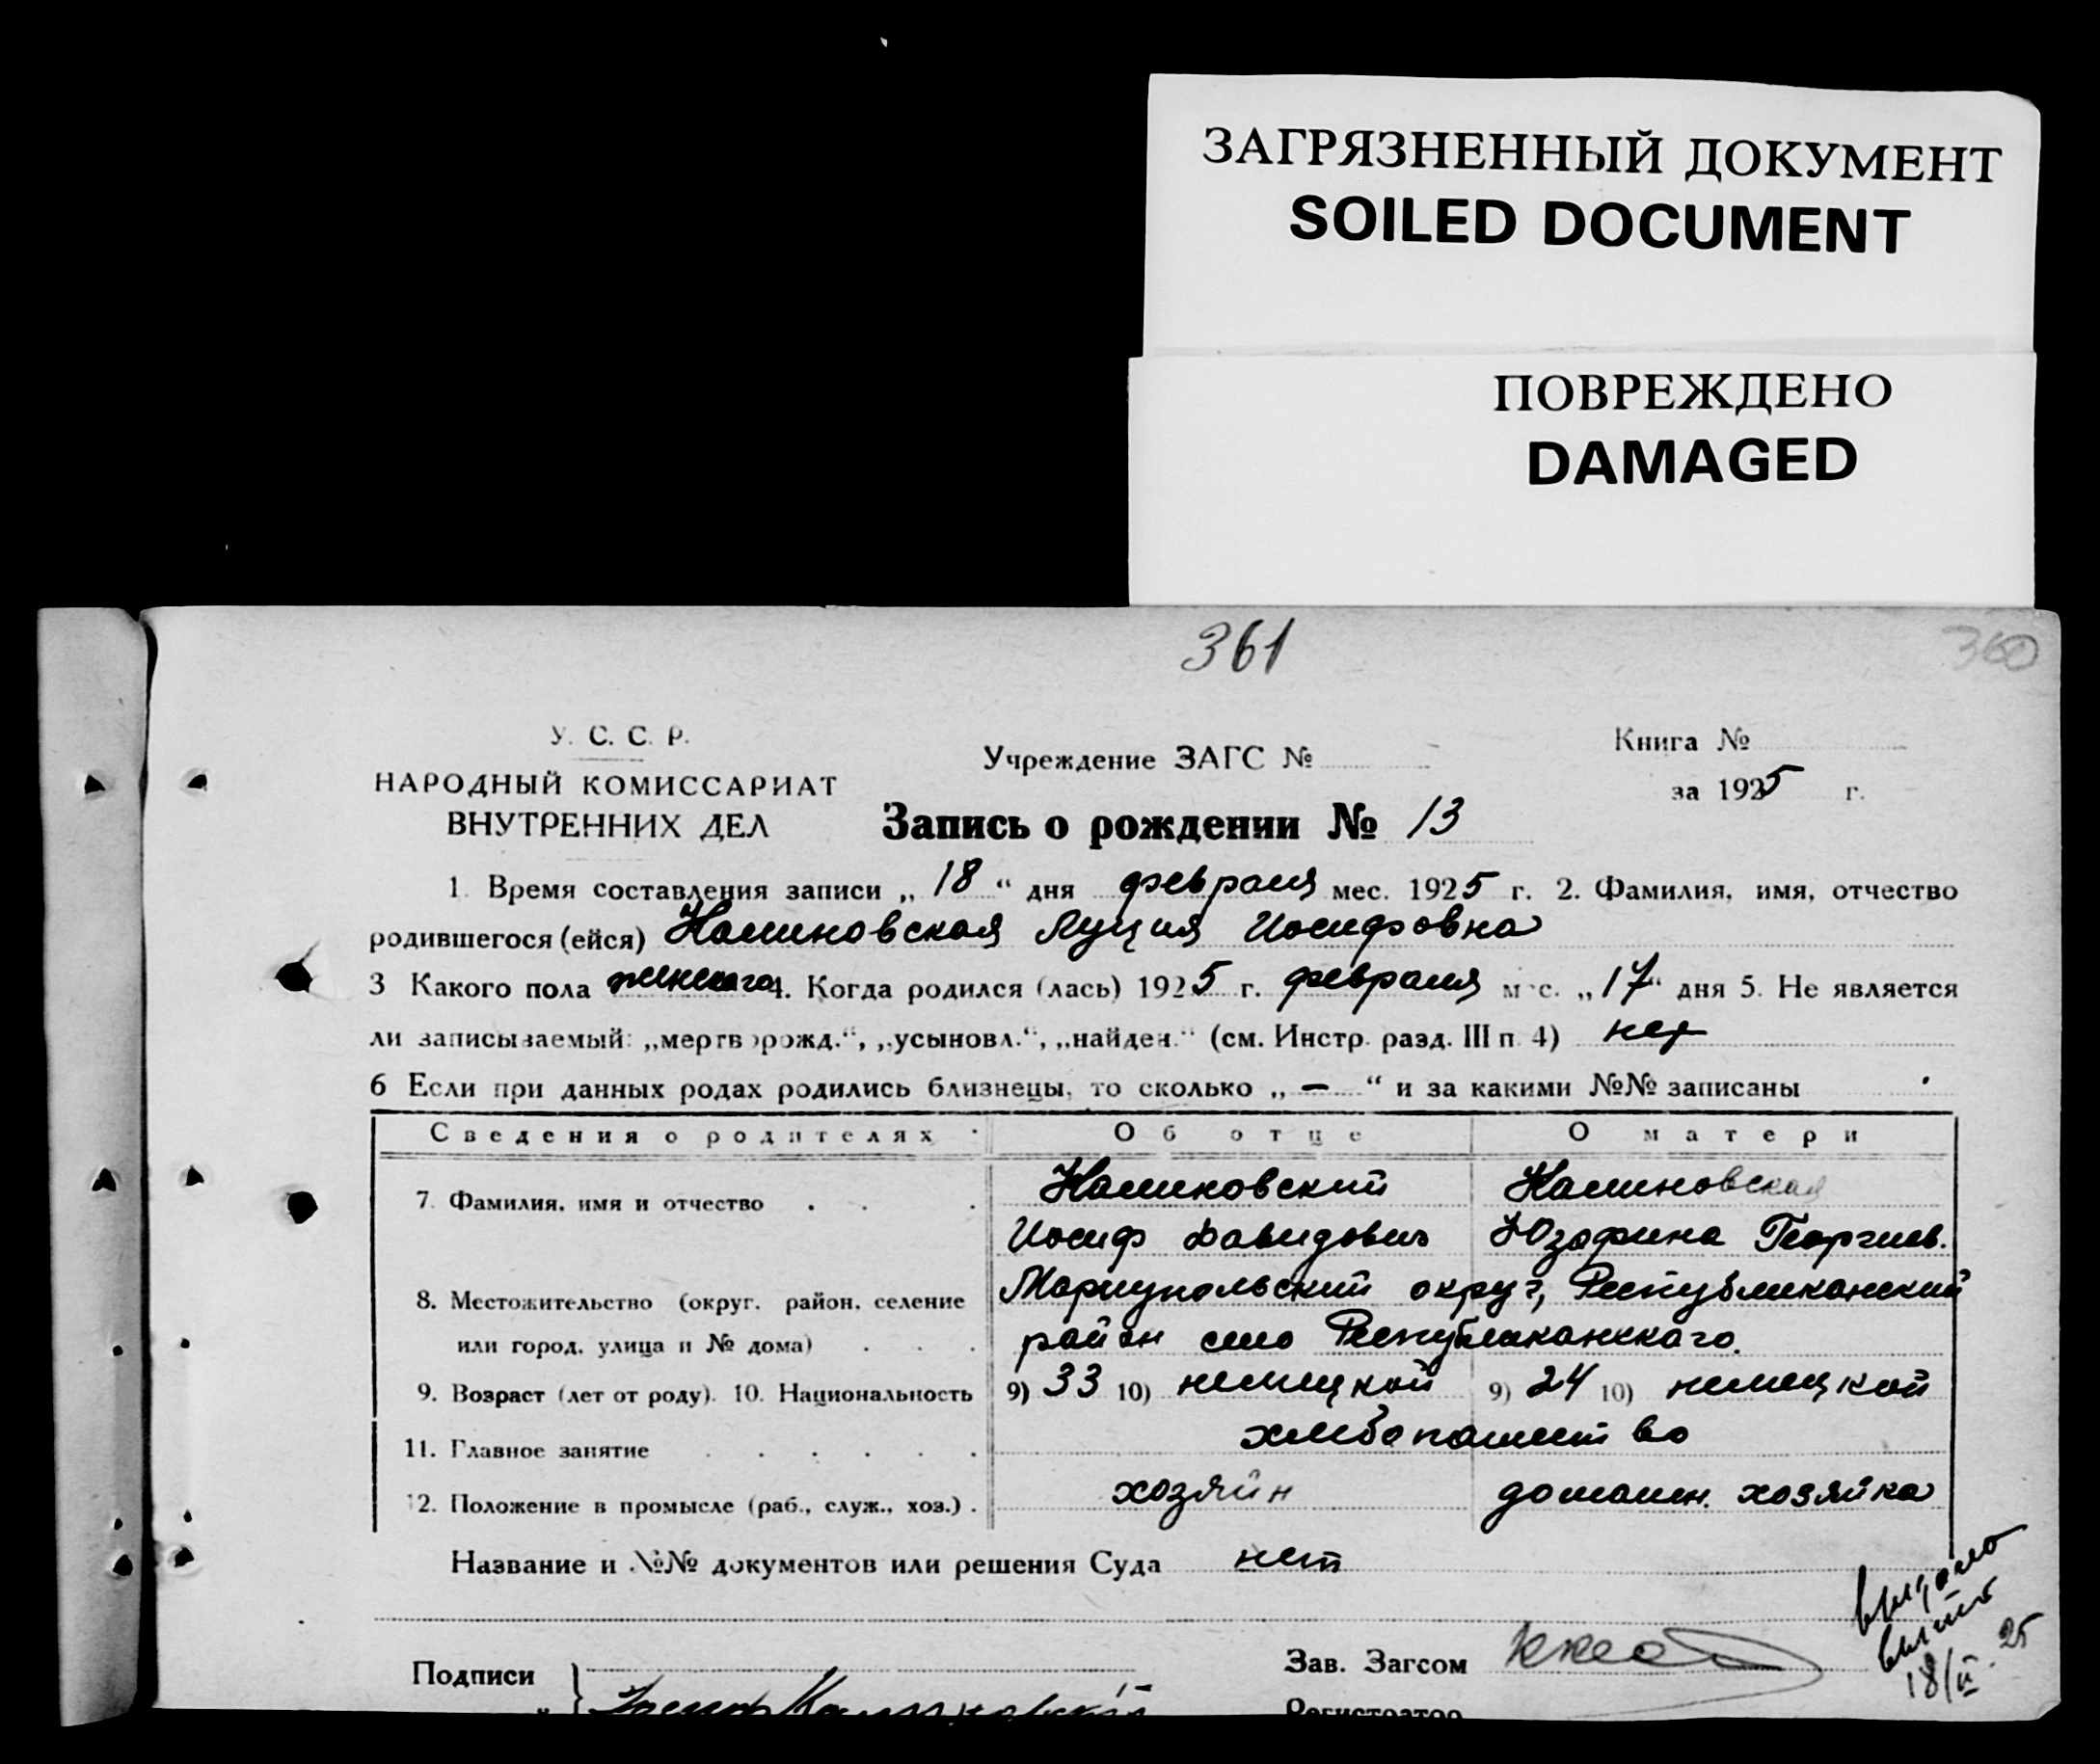 ЗАГРЯЗНЕННЫЙ ДОКУМЕНТ
SOILED DOCUMENT
ПОВРЕЖДЕНО
DAMAGED
361
360
У. С. С. Р.
НАРОДНЫЙ КОМИССАРИАТ
ВНУТРЕННИХ ДЕЛ
Учреждение ЗАГС №
Книга №
за 1925 г.
Запись о рождении № 13
1. Время составления записи „ 18 “ дня февраля мес. 1925 г. 2. Фамилия, имя, отчество
родившегося (ейся) Калиновская Луция Иосифовна
3 Какого пола женскаго 4. Когда родился (лась) 1925 г. февраля мес. „17“ дня 5. Не является
ли записываемый: „мертворожд.“, „усыновл.“, „найден.“ (см. Инстр. разд. III п. 4) нет
6 Если при данных родах родились близнецы, то сколько „ — “ и за какими №№ записаны
Сведения о родителях Об отце О матери
7. Фамилия, имя и отчество Калиновский Калиновская
Иосиф Давидович Юзофина Георгиев.
8. Местожительство (округ, район, селение Мариупольский округ, Республиканский
или город, улица и № дома) район село Республиканскаго.
9. Возраст (лет от роду). 10. Национальность 9) 33 10) немецкой 9) 24 10) немецкой
11. Главное занятие хлебопашество
12. Положение в промысле (раб., служ., хоз.) . хозяин домашн. хозяйка
Название и №№ документов или решения Суда нет
Подписи
Зав. Загсом
Иосиф Калиновскій
Регистратор
18/II 25